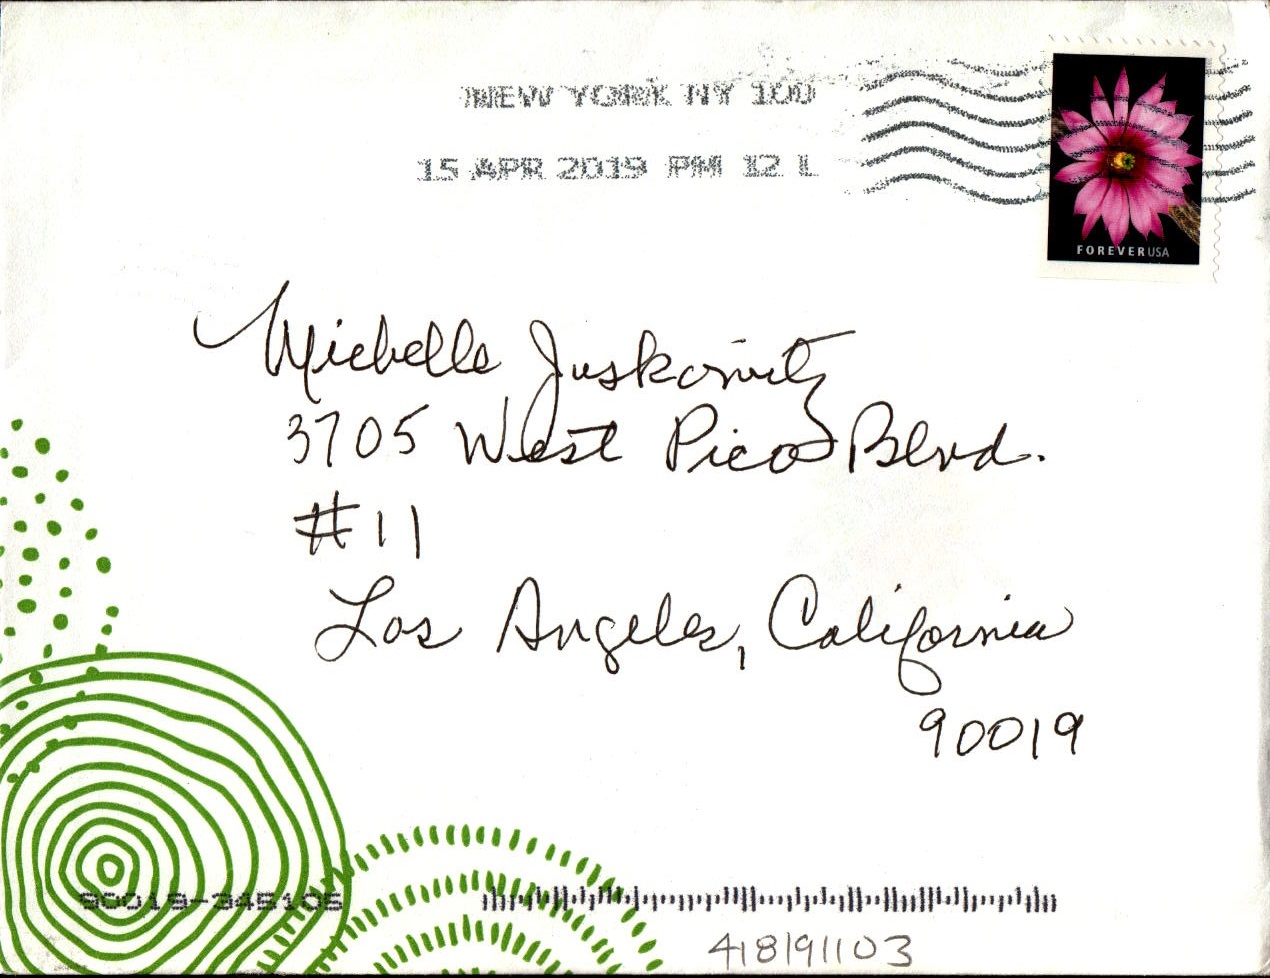 NEW YORK NY 100
15 APR 2019 PM 12 L
FOREVER USA
Michelle Juskowitz
3705 West Pico Blvd.
#11
Los Angeles, California
90019
90019-345105
418191103